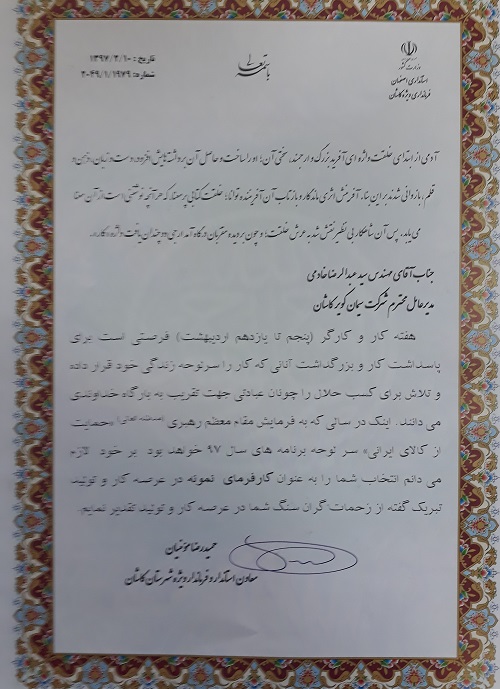 باسمه تعالی
تاریخ: ۱۳۹۷/۲/۱۰
شماره: ۲۰۴۹/۱/۱۹۷۹
وزارت کشور
استانداری اصفهان
فرمانداری ویژه کاشان
آدمی از ابتدای خلقت واژه ای آفرید بزرگ و ارجمند، سختی آن؛ او را ساخت و حاصل آن بر داشته هایش افزود، دست و زبان، ذهن و
قلم، بازوانی شدند بر این بنا، آفرینش اثری ماندگار و بازتاب آن آفریننده توانا؛ خلقت کتابی پر معنا، که هر آنچه نوشتنی است از آن معنا
می یابد، پس آن شاهکار بی نظیر نقش شد به عرش خلقت؛ و چون
جناب آقای مهندس سید عبدالرضا خادمی
مدیر عامل محترم شرکت سیمان کویر کاشان
هفته کار و کارگر (پنجم تا یازدهم اردیبهشت) فرصتی است برای
پاسداشت کار و بزرگداشت آنانی که کار را سرلوحه زندگی خود قرار داده
و تلاش برای کسب حلال را چونان عبادتی جهت تقریب به بارگاه خداوندی
می دانند. اینک در سالی که به فرمایش مقام معظم رهبری «حمایت
از کالای ایرانی» سر لوحه برنامه های سال ۹۷ خواهد بود بر خود لازم
می دانم انتخاب شما را به عنوان کارفرمای نمونه در عرصه کار و تولید،
تبریک گفته از زحمات گران سنگ شما در عرصه کار و تولید تقدیر نمایم.
حمیدرضا مؤمنیان
معاون استاندار و فرماندار ویژه شهرستان کاشان